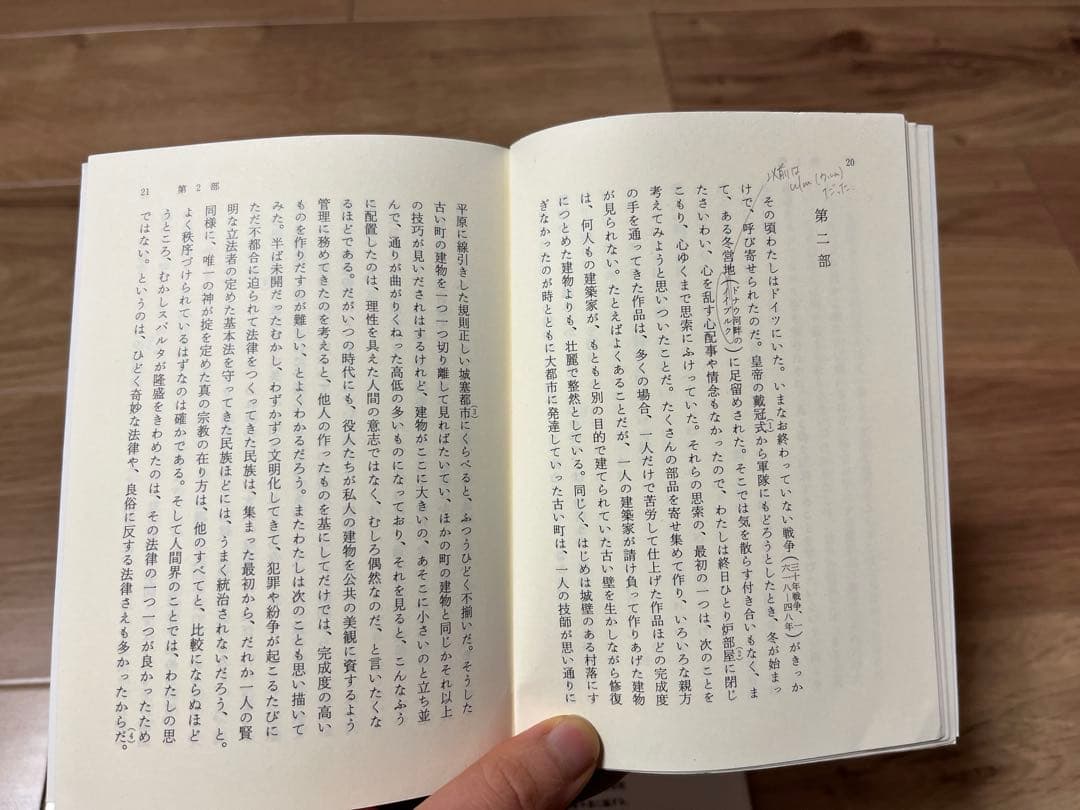 20
以前は
ulm(ウルム)
だった
第二部
その頃わたしはドイツにいた。いまなお終わっていない戦争(三十年戦争、一六一八―四八年)がきっか
けで、呼び寄せられたのだ。皇帝の戴冠式(1)から軍隊にもどろうとしたとき、冬が始まっ
て、ある冬営地(ドナウ河畔のノイブルク)に足留めされた。そこでは気を散らす付き合いもなく、ま
たさいわい、心を乱す心配事や情念もなかったので、わたしは終日ひとり炉部屋(2)に閉じ
こもり、心ゆくまで思索にふけっていた。それらの思索の、最初の一つは、次のことを
考えてみようと思いついたことだ。たくさんの部品を寄せ集めて作り、いろいろな親方
の手を通ってきた作品は、多くの場合、一人だけで苦労して仕上げた作品ほどの完成度
が見られない。たとえばよくあることだが、一人の建築家が請け負って作りあげた建物
は、何人もの建築家が、もともと別の目的で建てられていた古い壁を生かしながら修復
につとめた建物よりも、壮麗で整然としている。同じく、はじめは城壁のある村落にす
ぎなかったのが時とともに大都市に発達していった古い町は、一人の技師が思い通りに
21 第2部
平原に線引きした規則正しい城塞都市(3)にくらべると、ふつうひどく不揃いだ。そうした
古い町の建物を一つ一つ切り離して見ればたいてい、ほかの町の建物と同じかそれ以上
の技巧が見いだされはするけれど、建物がここに大きいの、あそこに小さいのと立ち並
んで、通りが曲がりくねった高低の多いものになっており、それを見ると、こんなふう
に配置したのは、理性を具えた人間の意志ではなく、むしろ偶然なのだ、と言いたくな
るほどである。だがいつの時代にも、役人たちが私人の建物を公共の美観に資するよう
管理に務めてきたのを考えると、他人の作ったものを基にしてだけでは、完成度の高い
ものを作りだすのが難しい、とよくわかるだろう。またわたしは次のことも思い描いて
みた。半ば未開だったむかし、わずかずつ文明化してきて、犯罪や紛争が起こるたびに
ただ不都合に迫られて法律をつくってきた民族は、集まった最初から、だれか一人の賢
明な立法者の定めた基本法を守ってきた民族ほどには、うまく統治されないだろう、と。
同様に、唯一の神が掟を定めた真の宗教の在り方は、他のすべてと、比較にならぬほど
よく秩序づけられているはずなのは確かである。そして人間界のことでは、わたしの思
うところ、むかしスパルタが隆盛をきわめたのは、その法律の一つ一つが良かったため
ではない。というのは、ひどく奇妙な法律や、良俗に反する法律さえも多かったからだ。(4)